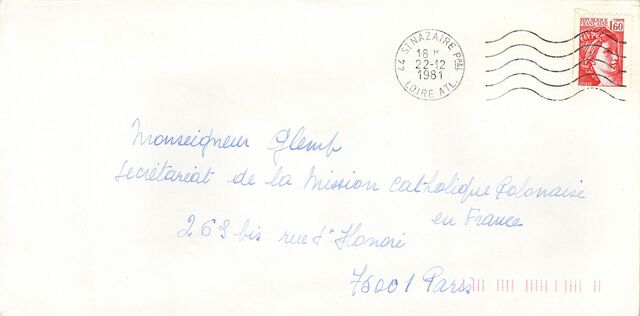 44 ST NAZAIRE PPAL
18 H
22-12
1981
LOIRE ATL.
REPUBLIQUE
FRANCAISE
1,60
Monseigneur Glemp
Secrétariat de la Mission Catholique Polonaise
en France
263 bis rue St Honoré
75001 Paris